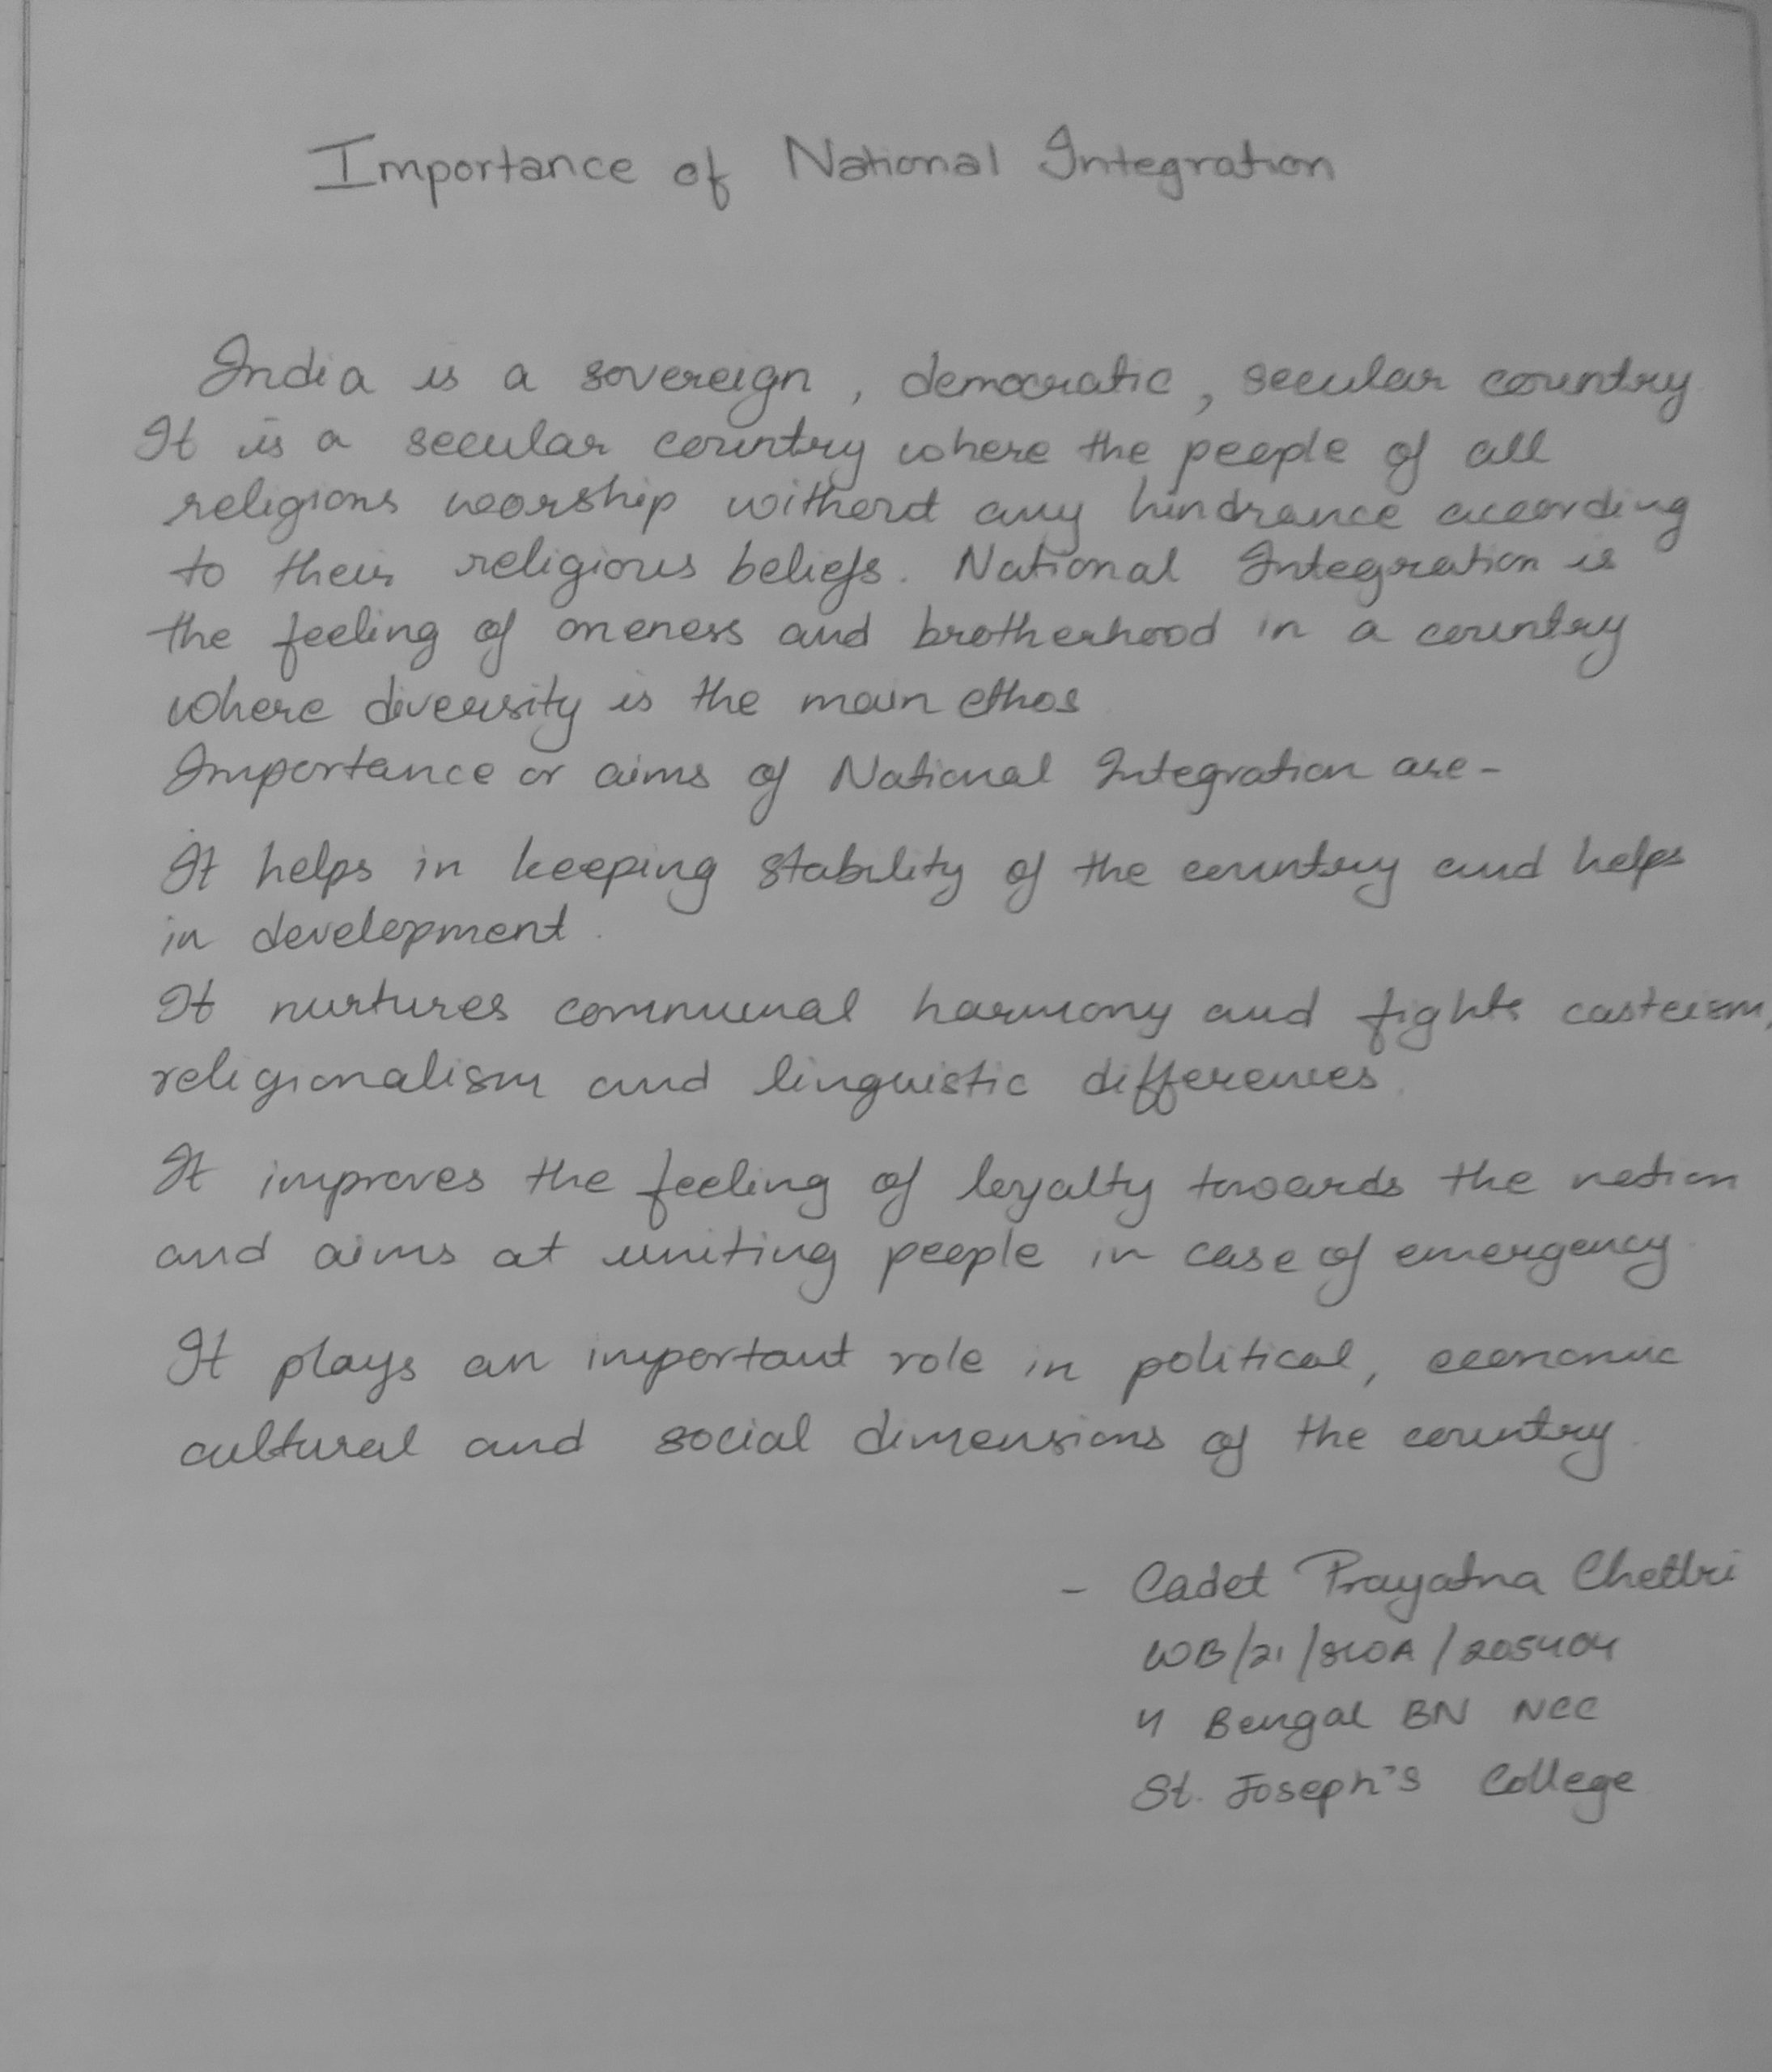 Importance of National Integration
India is a sovereign, democratic, secular country
It is a secular country where the people of all
religions worship without any hindrance according
to their religious beliefs. National Integration is
the feeling of oneness and brotherhood in a country
where diversity is the main ethos
Importance or aims of National Integration are-
It helps in keeping stability of the country and helps
in development.
It nurtures communal harmony and fights casteism,
religionalism and linguistic differences.
It improves the feeling of loyalty towards the nation
and aims at uniting people in case of emergency
It plays an important role in political, economic
cultural and social dimensions of the country.
- Cadet Prayatna Chettri
WB/21/ /205404
4 Bengal BN NCC
St. Joseph's College